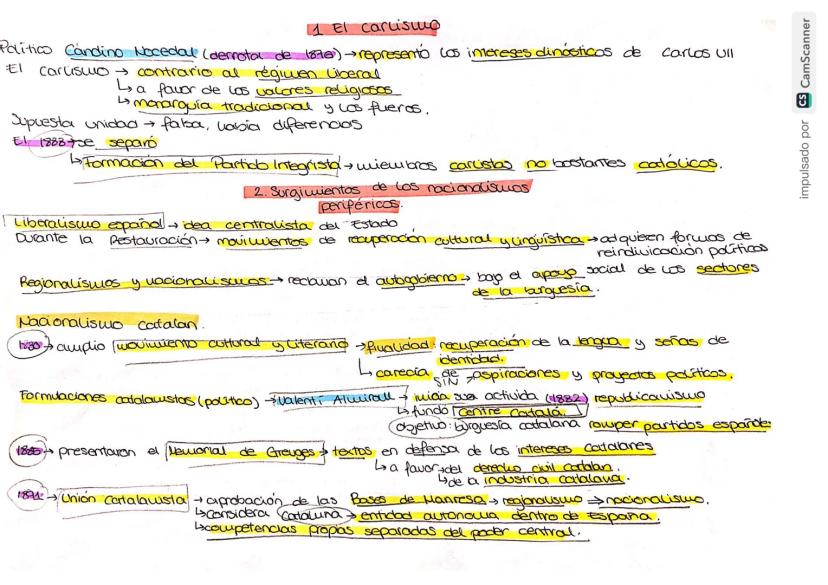 1. El carlismo
Político Cándino Nocedal (derrota de 1876) → representó los intereses dinásticos de Carlos VII
El carlismo → contrario al régimen liberal
↳ a favor de los valores religiosos
↳ monarquía tradicional y los fueros.
Supuesta unidad → falsa, había diferencias
El 1888 → se separó
↳ Formación del Partido Integrista → miembros carlistas no bastantes católicos.
2. Surgimientos de los nacionalismos
periféricos.
Liberalismo español → idea centralista del Estado
Durante la Restauración → movimientos de recuperación cultural y lingüística → adquieren formas de
reindivicación políticas
Regionalismos y nacionalismos → reclaman el autogobierno → bajo el apoyo social de los sectores
de la burguesía.
Nacionalismo catalan.
→ amplio movimiento cultural y literario → finalidad: recuperación de la lengua y señas de
identidad.
↳ carecía de SIN aspiraciones y proyectos políticos.
Formulaciones catalanistas (político) → Valentí Almirall → inicia sua activida (1882) republicanismo
↳ fundó Centre Catalá.
Objetivo: burguesía catalana romper partidos españoles
1885 → presentaron el Memorial de Greuges → textos en defensa de los intereses Catalanes
↳ a favor → del derecho civil catalan.
↳ de la industria catalana.
1891 → Unión Catalanista → aprobación de las Bases de Manresa → regionalismo → nacionalismo.
↳ Considera Cataluña → entidad autonoma dentro de España.
↳ competencias propas separadas del poder central.
impulsado por CS CamScanner